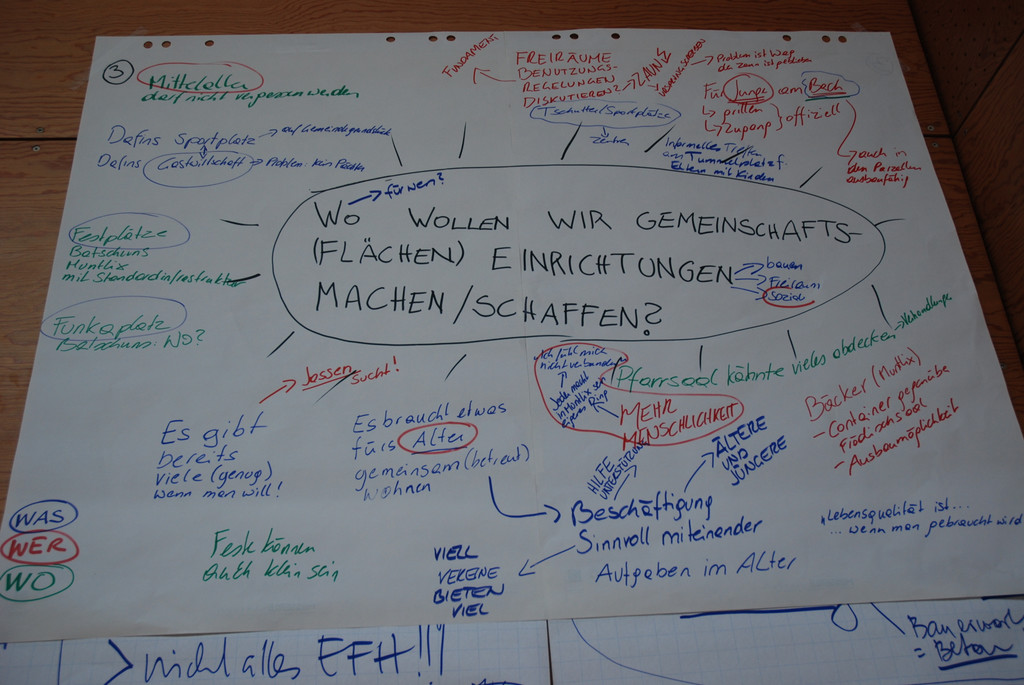 3
Mittdolla
darf nicht vergessen werden
FUNDAMENT
FREIRÄUME
BENUTZUNGS-
REGELUNGEN
DISKUTIEREN
ZAUN
Tschutter/Sportplätze
Zentren
Problem ist Weg
Für Junge am Bach
→ grillen
→ Zugang
offiziell
→ auch in
den Parzellen
ausbaufähig
Informelles Treffen
am Tummelplatz f.
Eltern mit Kindern
Defins Sportplatz → auf Gemeindegrundstück
Defins Gastwirtschaft → Problem: kein Pächter
→ für wen?
WO WOLLEN WIR GEMEINSCHAFTS-
(FLÄCHEN) EINRICHTUNGEN
MACHEN/SCHAFFEN?
bauen
Freiraum
Sozial
Festplätze
Batschuns
Muntlix
mit Standardinfrastruktur
Funkaplatz
Batschuns: WO?
→ Jassen sucht!
Es gibt
bereits
viele (genug)
wenn man will!
Es braucht etwas
fürs Alter
gemeinsam (betreut)
wohnen
Ich fühl mich
nicht verbunden
Jede macht
in Muntlix sein
eigenes Ding
MEHR
MENSCHLICHKEIT
Pfarrsaal könnte vieles abdecken → Verhandlungen
Bäcker (Muntlix)
- Container gegenüber
Frödischsaal
- Ausbaumöglichkeit
HILFE
UNTERSTÜTZUNG
ÄLTERE
UND
JÜNGERE
Beschäftigung
Sinnvoll miteinander
Aufgaben im Alter
VIELL
VEREINE
BIETEN
VIEL
"Lebensqualität ist...
...wenn man gebraucht wird
WAS
WER
WO
Feste können
auch klein sein
> nicht alles EFH!!!
= Beton